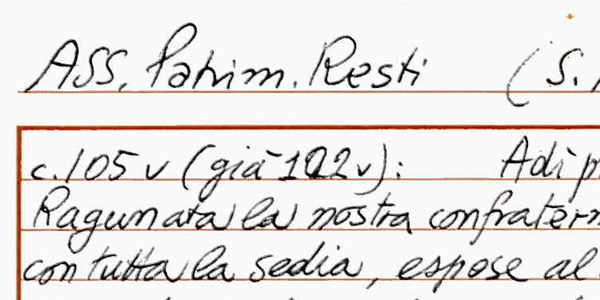 ASS. Patrim. Resti (S.
c. 105 v (già 102 v): Adì
Ragunata la nostra
con tutta la sedia, espose al